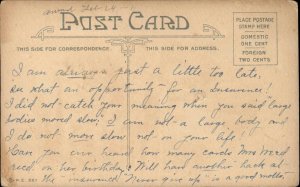 POST CARD
THIS SIDE FOR CORRESPONDENCE
THIS SIDE FOR ADDRESS.
PLACE POSTAGE
STAMP HERE
DOMESTIC
ONE CENT
FOREIGN
TWO CENTS
I am always just a little too late,
see what an opportunity for an Insurance!
I did not catch your meaning when you said large
bodies moved slow. I am not a large body and
I do not move slow not on your life!
Have you ever heard how many cards Mrs
on her birthday? Will have another hack at
the insured. "Never give up" is a good motto.